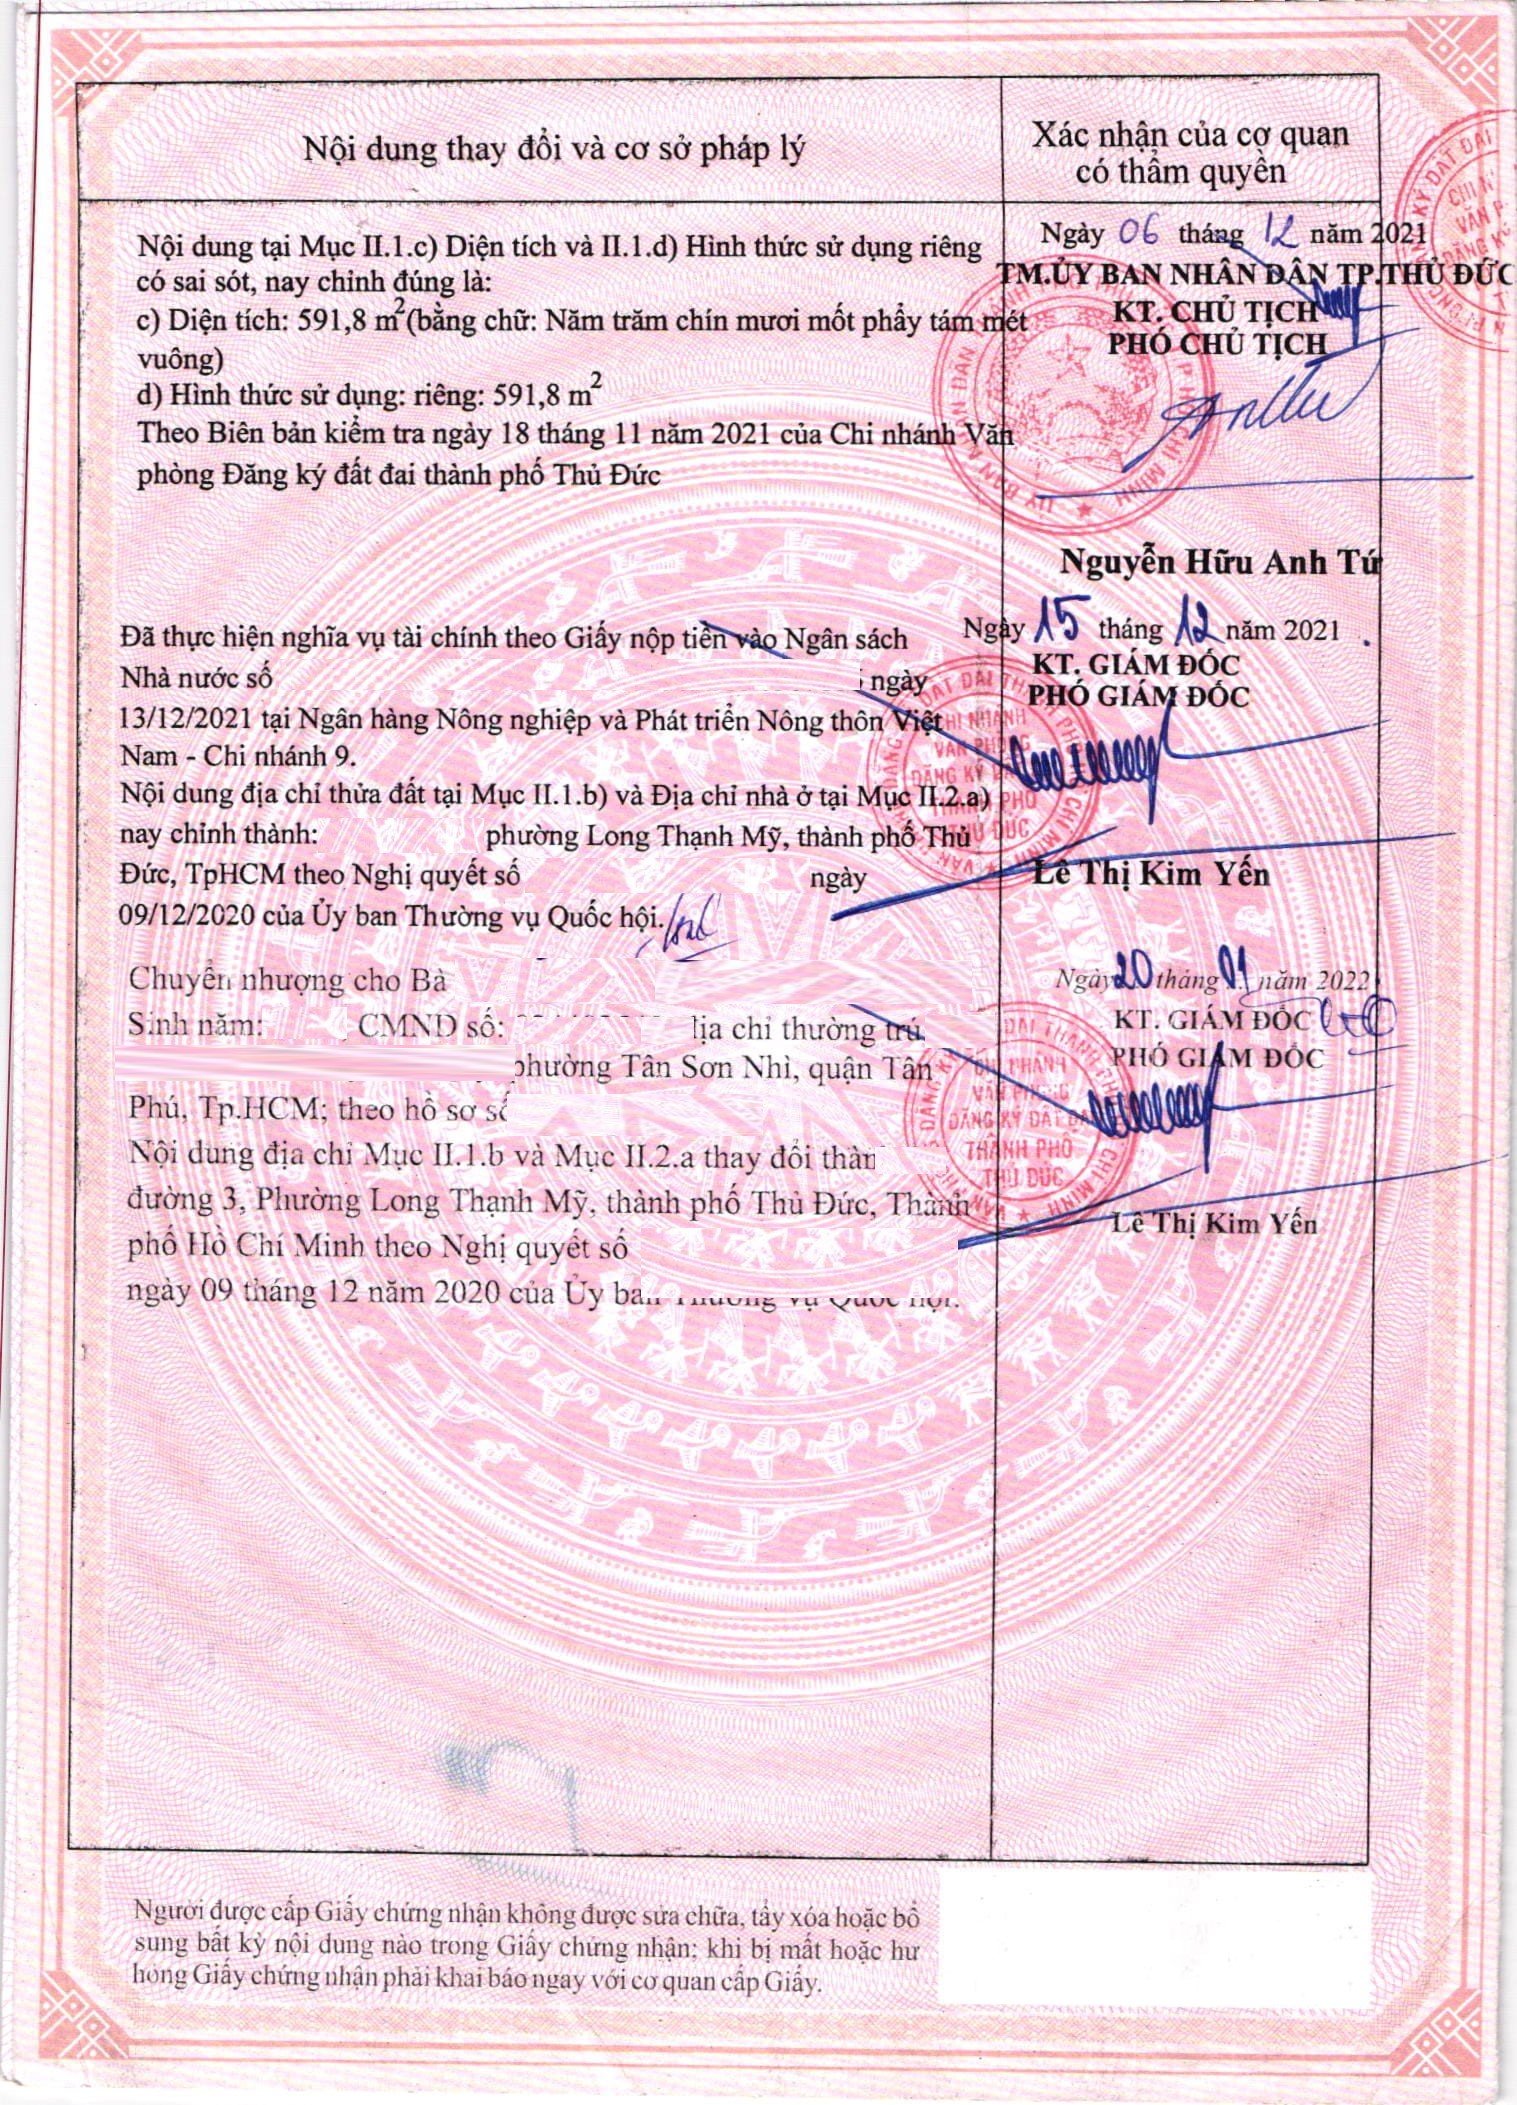 Nội dung thay đổi và cơ sở pháp lý
Xác nhận của cơ quan
có thẩm quyền
Nội dung tại Mục II.1.c) Diện tích và II.1.d) Hình thức sử dụng riêng
có sai sót, nay chỉnh đúng là:
c) Diện tích: 591,8 m2(bằng chữ: Năm trăm chín mươi mốt phẩy tám mét
vuông)
d) Hình thức sử dụng: riêng: 591,8 m2
Theo Biên bản kiểm tra ngày 18 tháng 11 năm 2021 của Chi nhánh Văn
phòng Đăng ký đất đai thành phố Thủ Đức
Ngày 06 tháng 12 năm 2021
TM.ỦY BAN NHÂN DÂN TP.THỦ ĐỨC
KT. CHỦ TỊCH
PHÓ CHỦ TỊCH
Nguyễn Hữu Anh Tứ
Đã thực hiện nghĩa vụ tài chính theo Giấy nộp tiền vào Ngân sách
Nhà nước số ngày
13/12/2021 tại Ngân hàng Nông nghiệp và Phát triển Nông thôn Việt
Nam - Chi nhánh 9.
Nội dung địa chỉ thửa đất tại Mục II.1.b) và Địa chỉ nhà ở tại Mục II.2.a)
nay chỉnh thành: phường Long Thạnh Mỹ, thành phố Thủ
Đức, TpHCM theo Nghị quyết số ngày
09/12/2020 của Ủy ban Thường vụ Quốc hội.
Ngày 15 tháng 12 năm 2021
KT. GIÁM ĐỐC
PHÓ GIÁM ĐỐC
CHI NHÁNH
VĂN PHÒNG
ĐĂNG KÝ ĐẤT ĐAI
THÀNH PHỐ
THỦ ĐỨC
Lê Thị Kim Yến
Chuyển nhượng cho Bà
Sinh năm: CMND số: địa chỉ thường trú
phường Tân Sơn Nhì, quận Tân
Phú, Tp.HCM; theo hồ sơ số
Nội dung địa chỉ Mục II.1.b và Mục II.2.a thay đổi thàn
đường 3, Phường Long Thạnh Mỹ, thành phố Thủ Đức, Thành
phố Hồ Chí Minh theo Nghị quyết số
ngày 09 tháng 12 năm 2020 của Ủy ban Thường vụ Quốc hội.
Ngày 20 tháng 01 năm 2022
KT. GIÁM ĐỐC
PHÓ GIÁM ĐỐC
CHI NHÁNH
VĂN PHÒNG
ĐĂNG KÝ ĐẤT ĐAI
THÀNH PHỐ
THỦ ĐỨC
Lê Thị Kim Yến
Người được cấp Giấy chứng nhận không được sửa chữa, tẩy xóa hoặc bổ
sung bất kỳ nội dung nào trong Giấy chứng nhận; khi bị mất hoặc hư
hỏng Giấy chứng nhận phải khai báo ngay với cơ quan cấp Giấy.